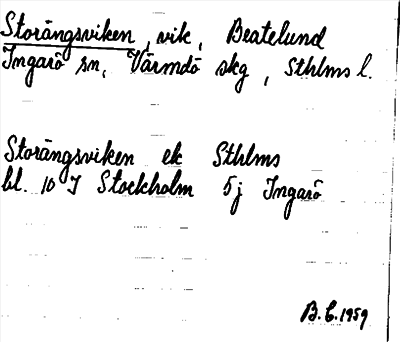 Storängsviken, vik, Beatelund
Ingarö sn, Värmdö skg, Sthlms l.
Storängsviken ek Sthlms
bl. 10 I Stockholm 5j Ingarö
B.C. 1959